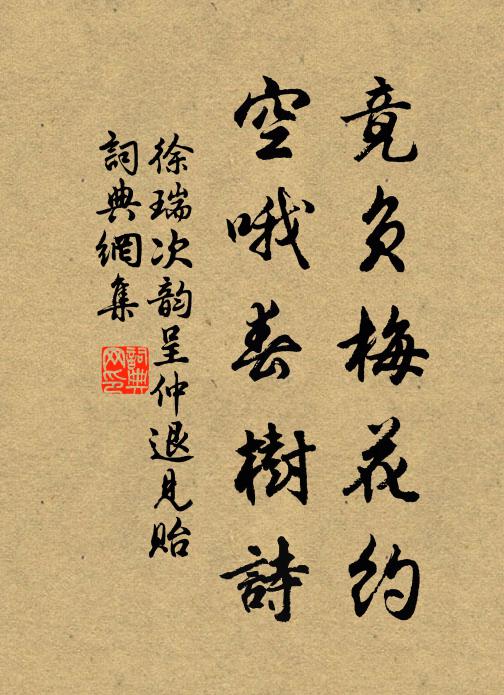 竟負梅花約
空哦春樹詩
徐瑞次韵呈仲退見貽
詞典網集
詞典
网印